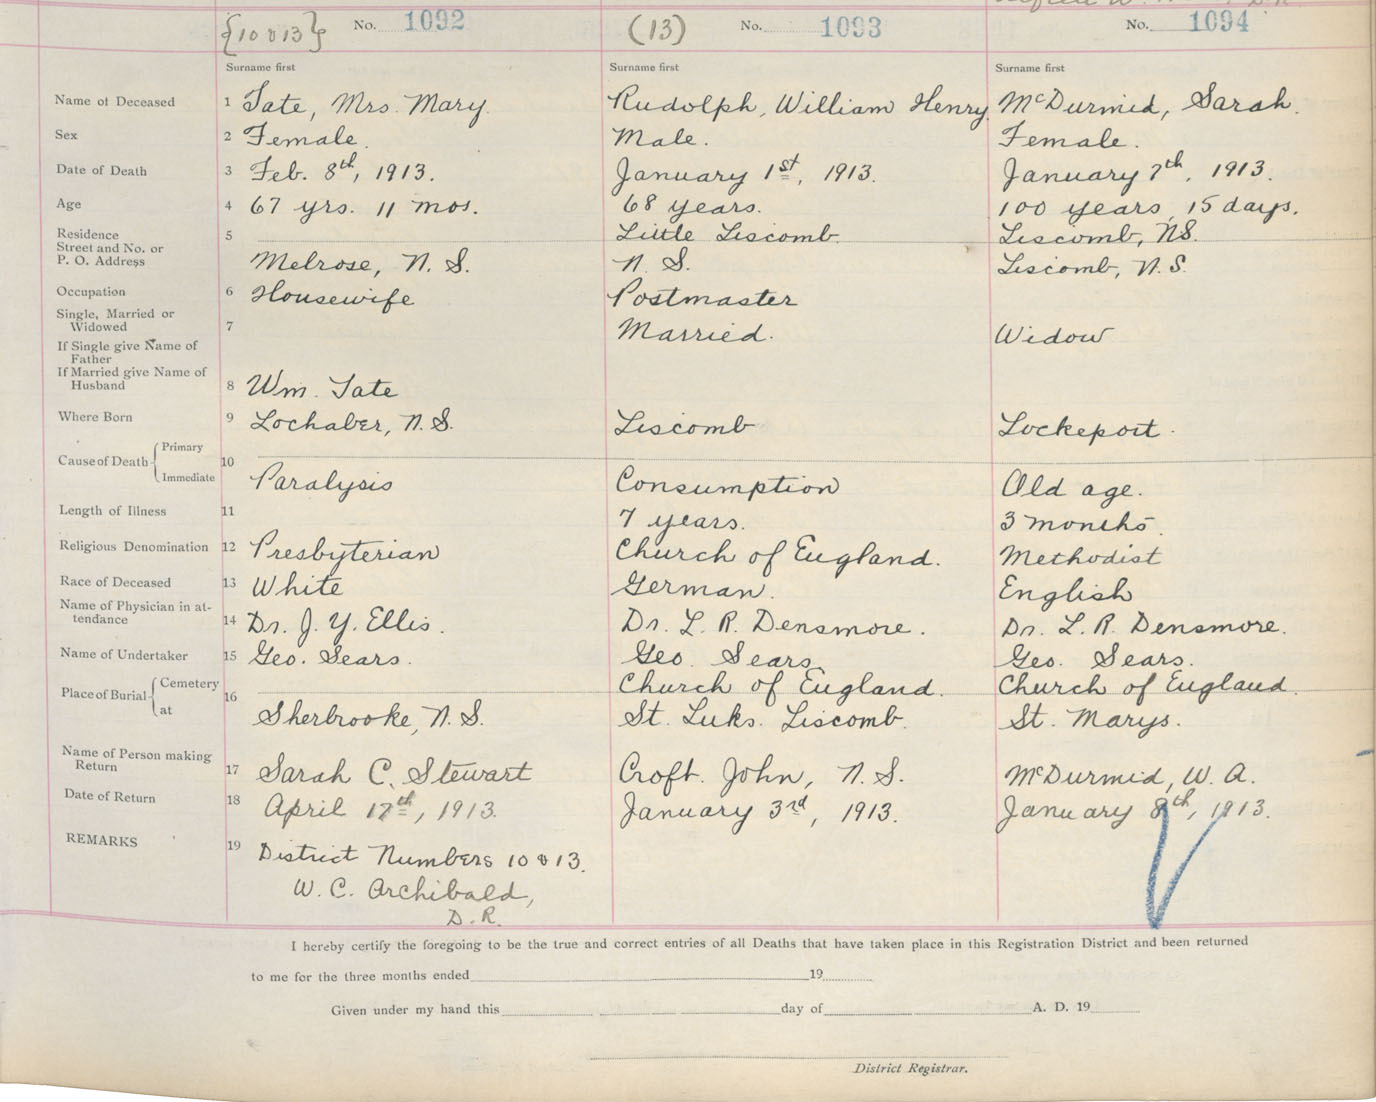 {10 & 13} No. 1092 (13) No. 1093 No. 1094
Surname first Surname first Surname first
Name of Deceased 1 Tate, Mrs. Mary. Rudolph, William Henry McDurmid, Sarah.
Sex 2 Female. Male. Female.
Date of Death 3 Feb. 8th, 1913. January 1st, 1913. January 7th, 1913.
Age 4 67 yrs. 11 mos. 68 years. 100 years, 15 days.
Residence 5 Little Liscomb. Liscomb, NS.
Street and No. or
P. O. Address Melrose, N. S. N. S. Liscomb, N.S.
Occupation 6 Housewife Postmaster
Single, Married or
Widowed 7 Married. Widow
If Single give Name of
Father
If Married give Name of
Husband 8 Wm. Tate
Where Born 9 Lochaber, N. S. Liscomb Lockeport.
Cause of Death Primary
10
Immediate Paralysis Consumption Old age.
Length of Illness 11 7 years. 3 months.
Religious Denomination 12 Presbyterian Church of England. Methodist
Race of Deceased 13 White German. English
Name of Physician in at-
tendance 14 Dr. J. Y. Ellis. Dr. L. R. Densmore. Dr. L. R. Densmore.
Name of Undertaker 15 Geo. Sears. Geo. Sears. Geo. Sears.
Place of Burial Cemetery 16 Church of England. Church of England.
at Sherbrooke, N. S. St. Luks. Liscomb. St. Marys.
Name of Person making
Return 17 Sarah C. Stewart Croft. John, N. S. McDurmid, W. A.
Date of Return 18 April 17th, 1913. January 3rd, 1913. January 8th, 1913.
REMARKS 19 District Numbers 10 & 13.
W. C. Archibald,
D. R.
I hereby certify the foregoing to be the true and correct entries of all Deaths that have taken place in this Registration District and been returned
to me for the three months ended 19
Given under my hand this day of A. D. 19
District Registrar.